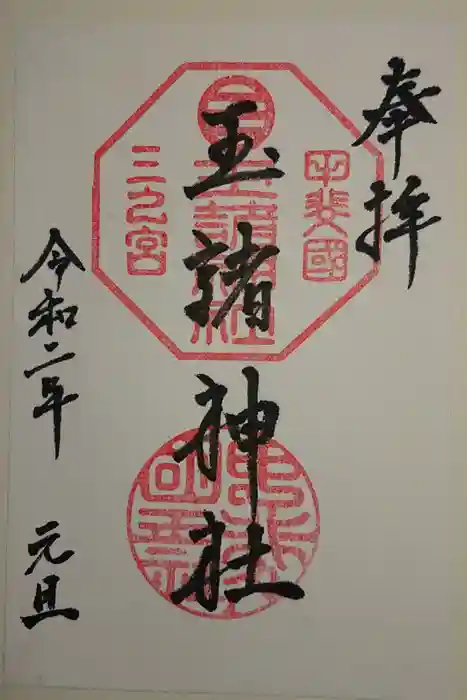 奉拝
甲斐國
玉諸神社
三之宮
令和二年 元旦